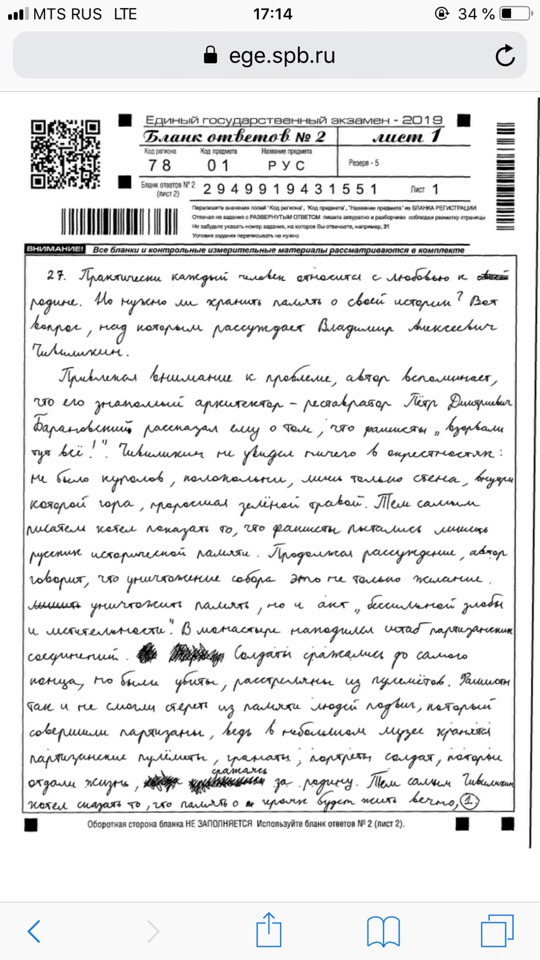 MTS RUS LTE 17:14 34 %
ege.spb.ru
Единый государственный экзамен - 2019
Бланк ответов № 2 лист 1
Код региона Код предмета Название предмета Резерв - 5
78 01 РУС
Бланк ответов № 2 (лист 2) 2949919431551 Лист 1
Перепишите значения полей "Код региона", "Код предмета", "Название предмета" из БЛАНКА РЕГИСТРАЦИИ
Отвечая на задания с РАЗВЕРНУТЫМ ОТВЕТОМ пишите аккуратно и разборчиво соблюдая разметку страницы
Не забудьте указать номер задания, на которое Вы отвечаете, например, 31
Условия задания переписывать не нужно
ВНИМАНИЕ! Все бланки и контрольные измерительные материалы рассматриваются в комплекте
27. Практически каждый человек относится с любовью к
родине. Но нужно ли хранить память о своей истории? Вот
вопрос, над которым рассуждает Владимир Алексеевич
Чивилихин.
Привлекая внимание к проблеме, автор вспоминает,
что его знакомый архитектор – реставратор Пётр Дмитриевич
Барановский рассказал ему о том, что фашисты „взорвали
тут всё!". Чивилихин не увидел ничего в окрестностях:
не было куполов, колокольни, лишь только стена, внутри
которой гора, проросшая зелёной травой. Тем самым
писатель хотел показать то, что фашисты пытались лишить
русских исторической памяти. Продолжая рассуждение, автор
говорит, что уничтожение собора это не только желание
уничтожить память, но и акт „бессильной злобы
и мстительности". В монастыре находился штаб партизанских
соединений. Солдаты сражались до самого
конца, но были убиты, расстреляны из пулемётов. Фашисты
так и не смогли стереть из памяти людей подвиг, который
совершили партизаны, ведь в небольшом музее хранятся
партизанские пулемёты, гранаты, портреты солдат, которые
отдали жизнь, сражаясь за родину. Тем самым Чивилихин
хотел сказать то, что память о героях будет жить вечно, 1
Оборотная сторона бланка НЕ ЗАПОЛНЯЕТСЯ Используйте бланк ответов № 2 (лист 2).